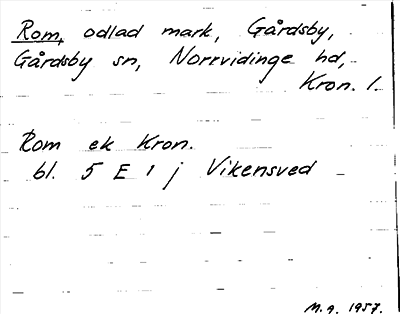 Rom, odlad mark, Gårdsby,
Gårdsby sn, Norrvidinge hd,
Kron. l.
Rom ek Kron.
bl. 5 E 1 j Vikensved
M.A. 1957.